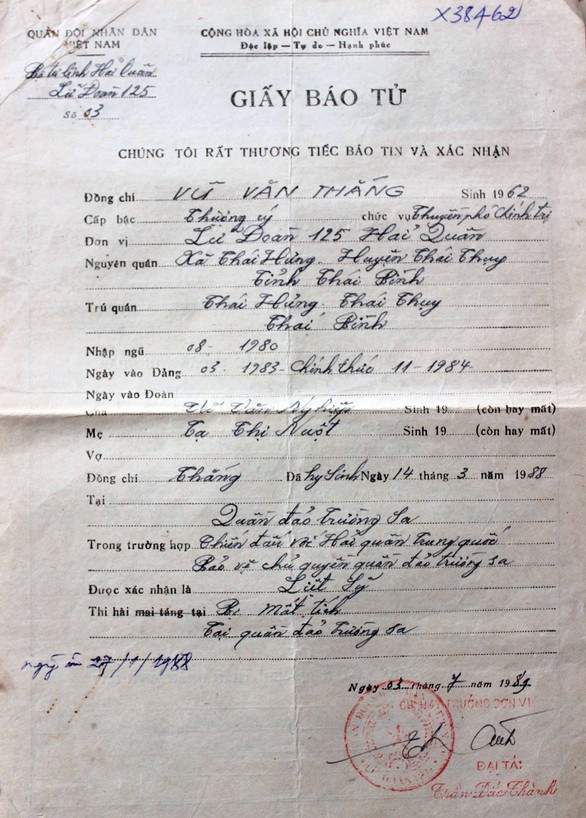 X38462
QUÂN ĐỘI NHÂN DÂN
VIỆT NAM
Bộ tư lệnh Hải Quân
Lữ Đoàn 125
Số 03
CỘNG HÒA XÃ HỘI CHỦ NGHĨA VIỆT NAM
Độc lập — Tự do — Hạnh phúc
GIẤY BÁO TỬ
CHÚNG TÔI RẤT THƯƠNG TIẾC BÁO TIN VÀ XÁC NHẬN
Đồng chí VŨ VĂN THẮNG Sinh 1962
Cấp bậc Thượng úy chức vụ Thuyền phó chính trị
Đơn vị Lữ Đoàn 125 Hải Quân
Nguyên quán Xã Thái Hưng. Huyện Thái Thụy
Tỉnh Thái Bình
Trú quán Thái Hưng. Thái Thụy
Thái Bình
Nhập ngũ 08 - 1980
Ngày vào Đảng 03. 1983 - Chính thức 11 - 1984
Ngày vào Đoàn
Cha Vũ Văn Sinh 19 (còn hay mất)
Mẹ Tạ Thị Sinh 19 (còn hay mất)
Vợ
Đồng chí Thắng Đã hy sinh Ngày 14 tháng 3 năm 1988
Tại
Quần đảo trường Sa
Trong trường hợp Chiến đấu với Hải quân trung quốc
Bảo vệ chủ quyền quần đảo trường sa
Được xác nhận là Liệt Sỹ
Thi hài mai táng tại Bị mất tích
Tại quần đảo trường sa
27/1/1988
Ngày 03 tháng 7 năm 1989
TRƯỞNG ĐƠN VỊ
ĐẠI TÁ:
Trần Đắc Thành